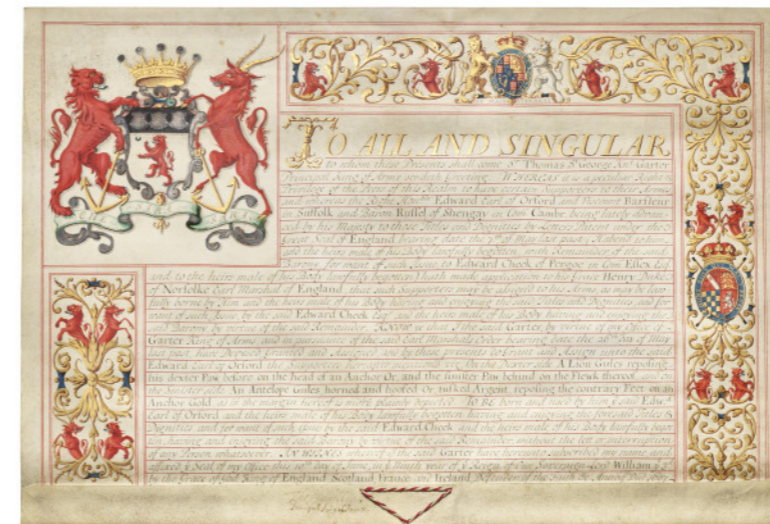 TO ALL AND SINGULAR
to whom these Presents shall come Sr Thomas St George Knt Garter
Principal King of Arms sendeth Greeting WHEREAS
Privilege of the Peers of this Realm to have certain Supporters to their Arms
and whereas the Right Honble Edward Earl of Orford and Viscount Barfleur
in Suffolk and Baron Russel of Shengay in Com Cambr being lately advan
ced by his Majesty to those Titles and Dignities by Letters Patent under the
Great Seal of England bearing date the 7th of May last past, Habend to him
and the heirs male of his Body lawfully begotten, with Remainder of the said
Barony for want of such Issue to Edward Cheek of Pergoe in Com Essex Esqr
and to the heirs male of his Body lawfully begotten hath made application to his Grace Henry Duke
of Norfolke Earl Marshal of England that such Supporters may be assigned to his Arms as may be law
fully borne by Him and the heirs male of his Body having and enjoying the said Titles and Dignities and for
want of such Issue by the said Edward Cheek Esqr and the heirs male of his Body having and enjoying the
said Barony by virtue of the said Remainder KNOW ye that I the said Garter by virtue of my Office of
Garter King of Arms and in pursuance of the said Earl Marshals Order bearing date the 28th day of May
last past, have Devised Granted and Assigned and by these presents do Grant and Assign unto the said
Edward Earl of Orford the Supporters hereafter mentioned viz. On the Dexter side A Lion Gules reposing
his dexter Paw before on the head of an Anchor Or, and the sinister Paw behind on the Fleuk thereof and on
the sinister side An Antelope Gules horned and hoofed Or tusked Argent reposing the contrary Feet on an
Anchor Gold TO BE borne and used by him ye said Edwd
Earl of Orford and the heirs male of his Body lawfully begotten having and enjoying the said Titles &
Dignities and for want of such Issue by the said Edward Cheek and the heirs male of his Body lawfully begot
ten having and enjoying the said Barony by virtue of the said Remainder without the let or interruption
of any Person whatsoever. IN WITNESS whereof I the said Garter have hereunto subscribed my name and
affixed ye Seal of my Office this 10th day of June in ye Ninth year of ye Reign of Our Sovereign Lord William ye 3d
by the Grace of God King of England Scotland France and Ireland Defender of the Faith &c